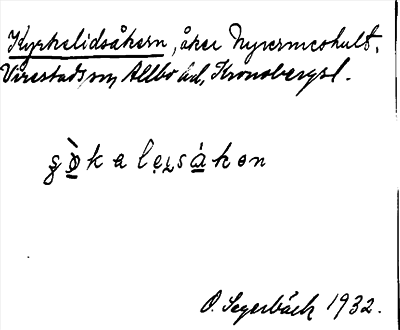 Kyrkelidsåkern, åker Nyvermeshult,
Virestads sn, Allbo hd, Kronobergs l.
O. Segerbäck 1932.